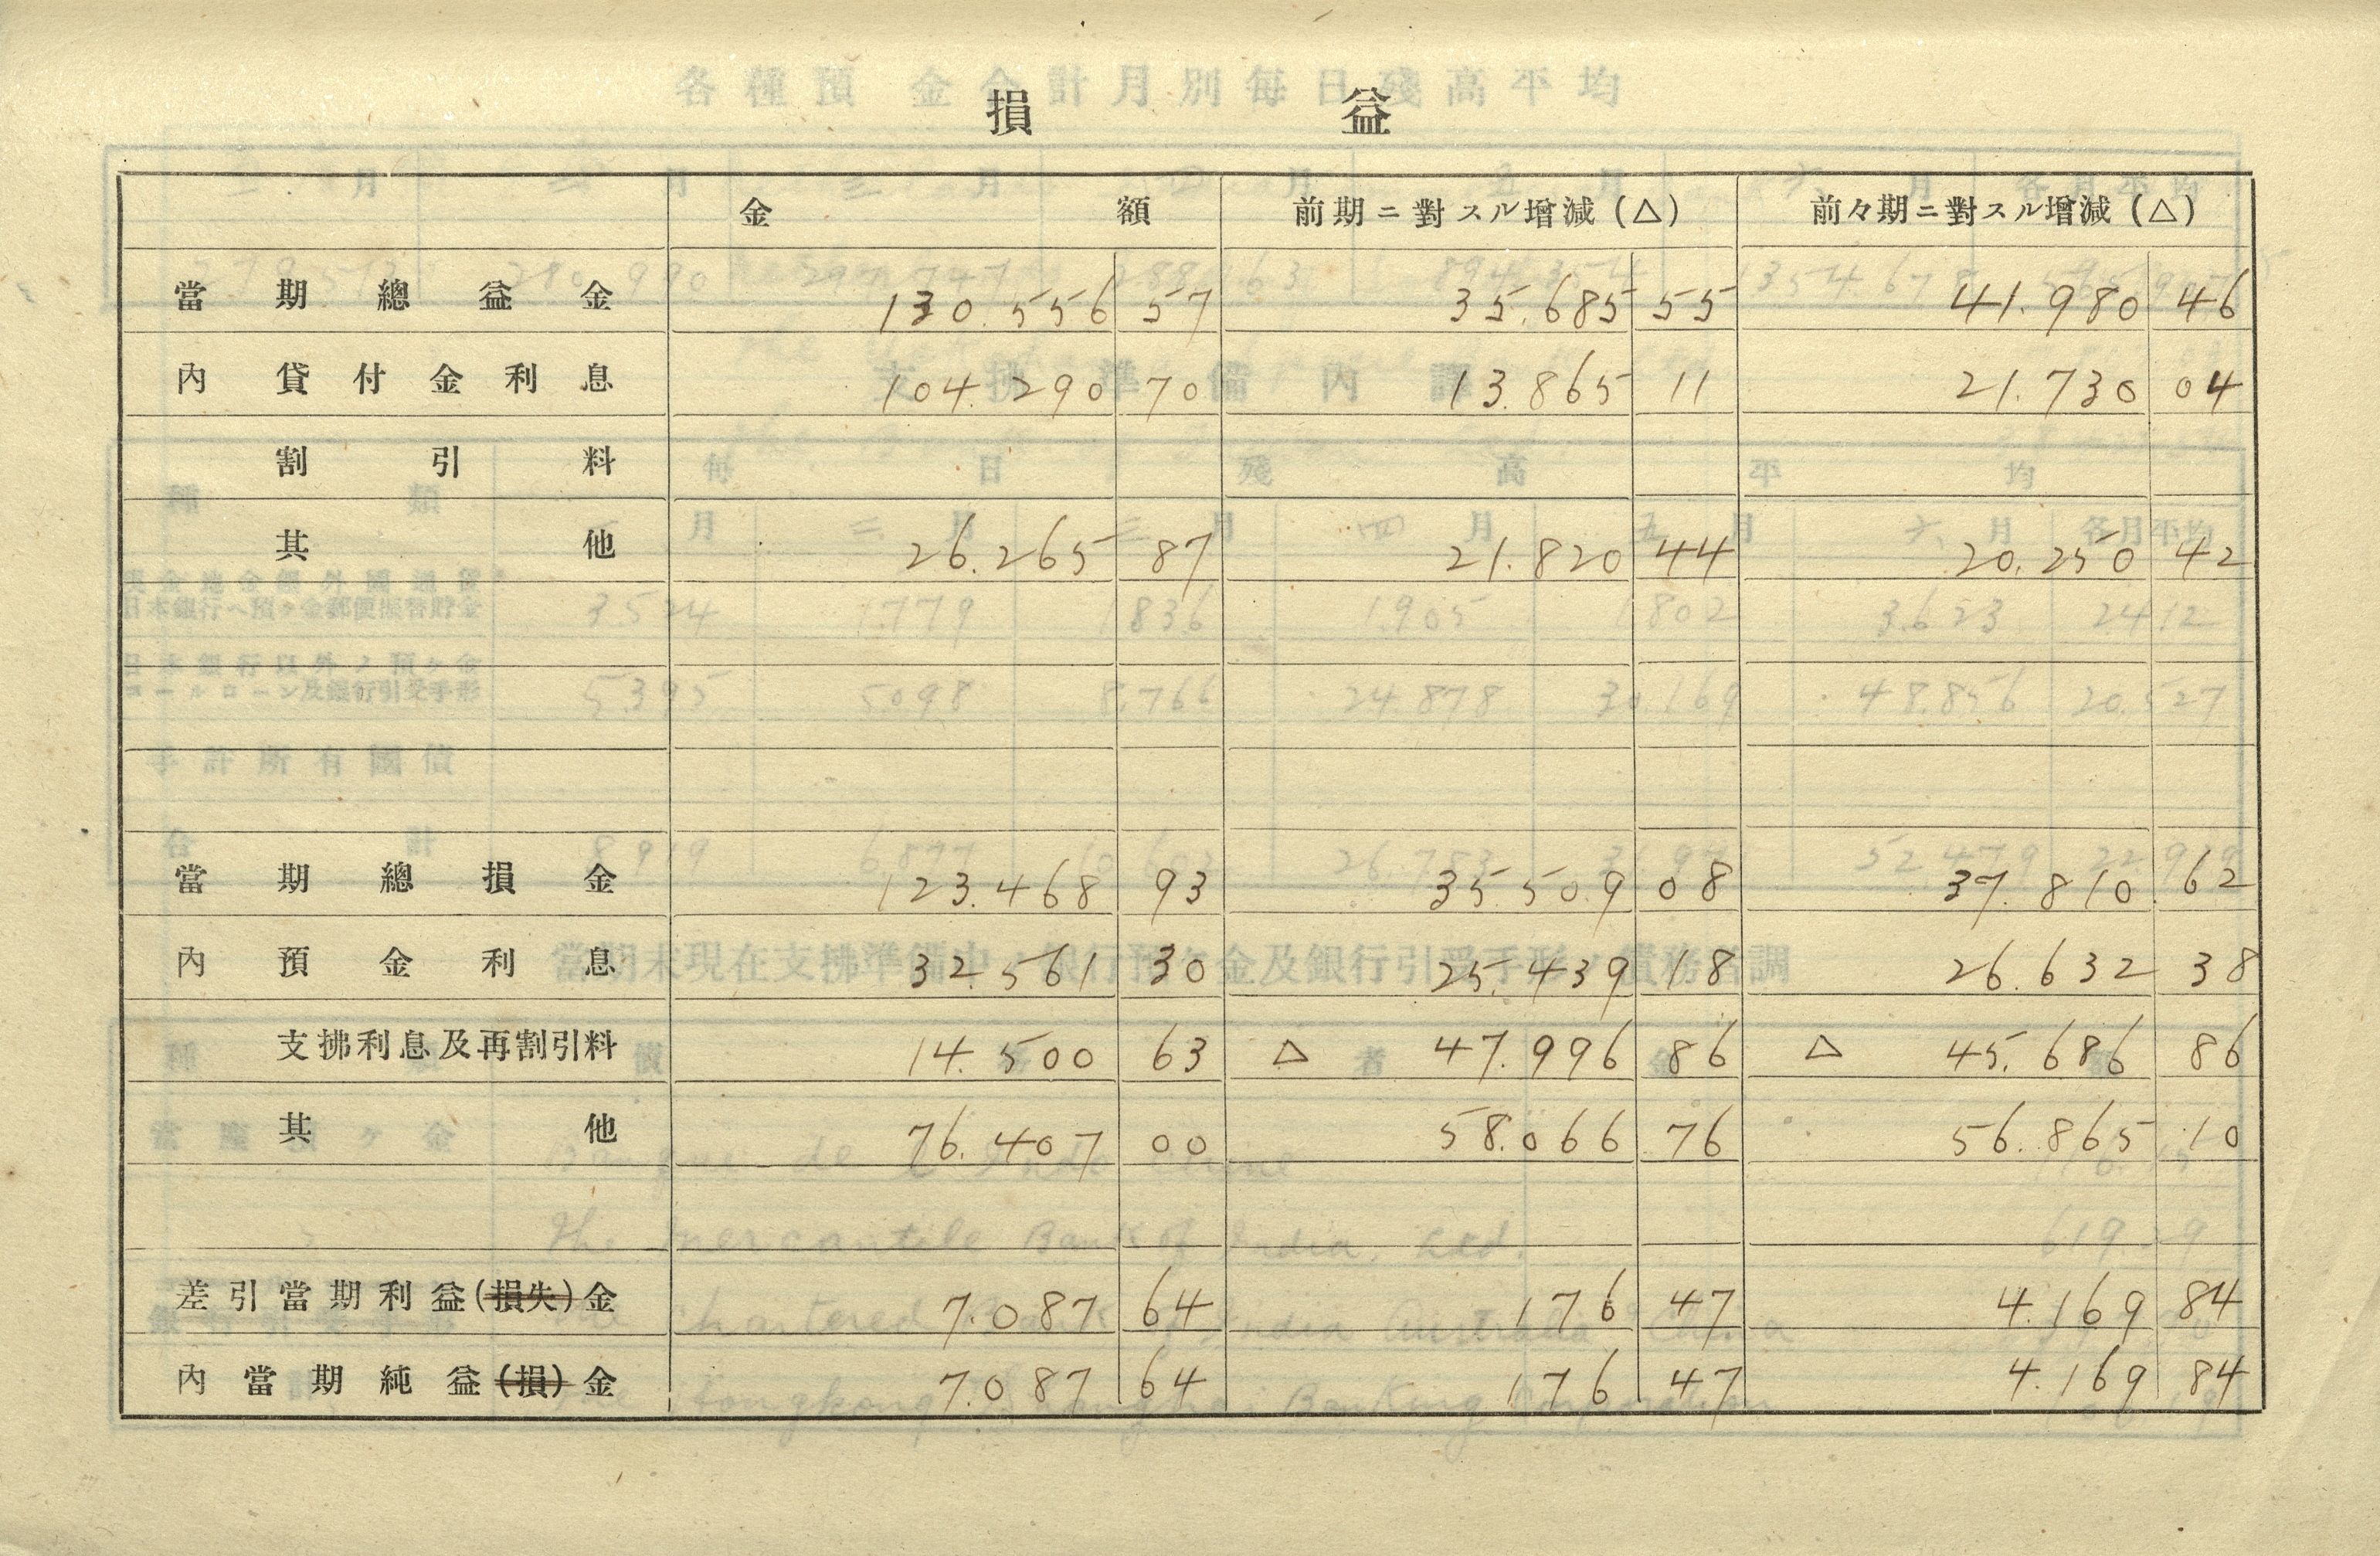 損益
金額 前期ニ對スル增減(△) 前々期ニ對スル增減(△)
當期總益金 130.556 57 35.685 55 41.980 46
內貸付金利息 104.290 70 13.865 11 21.730 04
割引料
其他 26.265 87 21.820 44 20.250 42
當期總損金 123.468 93 35.509 08 37.810 62
內預金利息 32.561 30 25.439 18 26.632 38
支拂利息及再割引料 14.500 63 △ 47.996 86 △ 45.686 86
其他 76.407 00 58.066 76 56.865 10
差引當期利益(損失)金 7.087 64 176 47 4.169 84
內當期純益(損)金 7.087 64 176 47 4.169 84